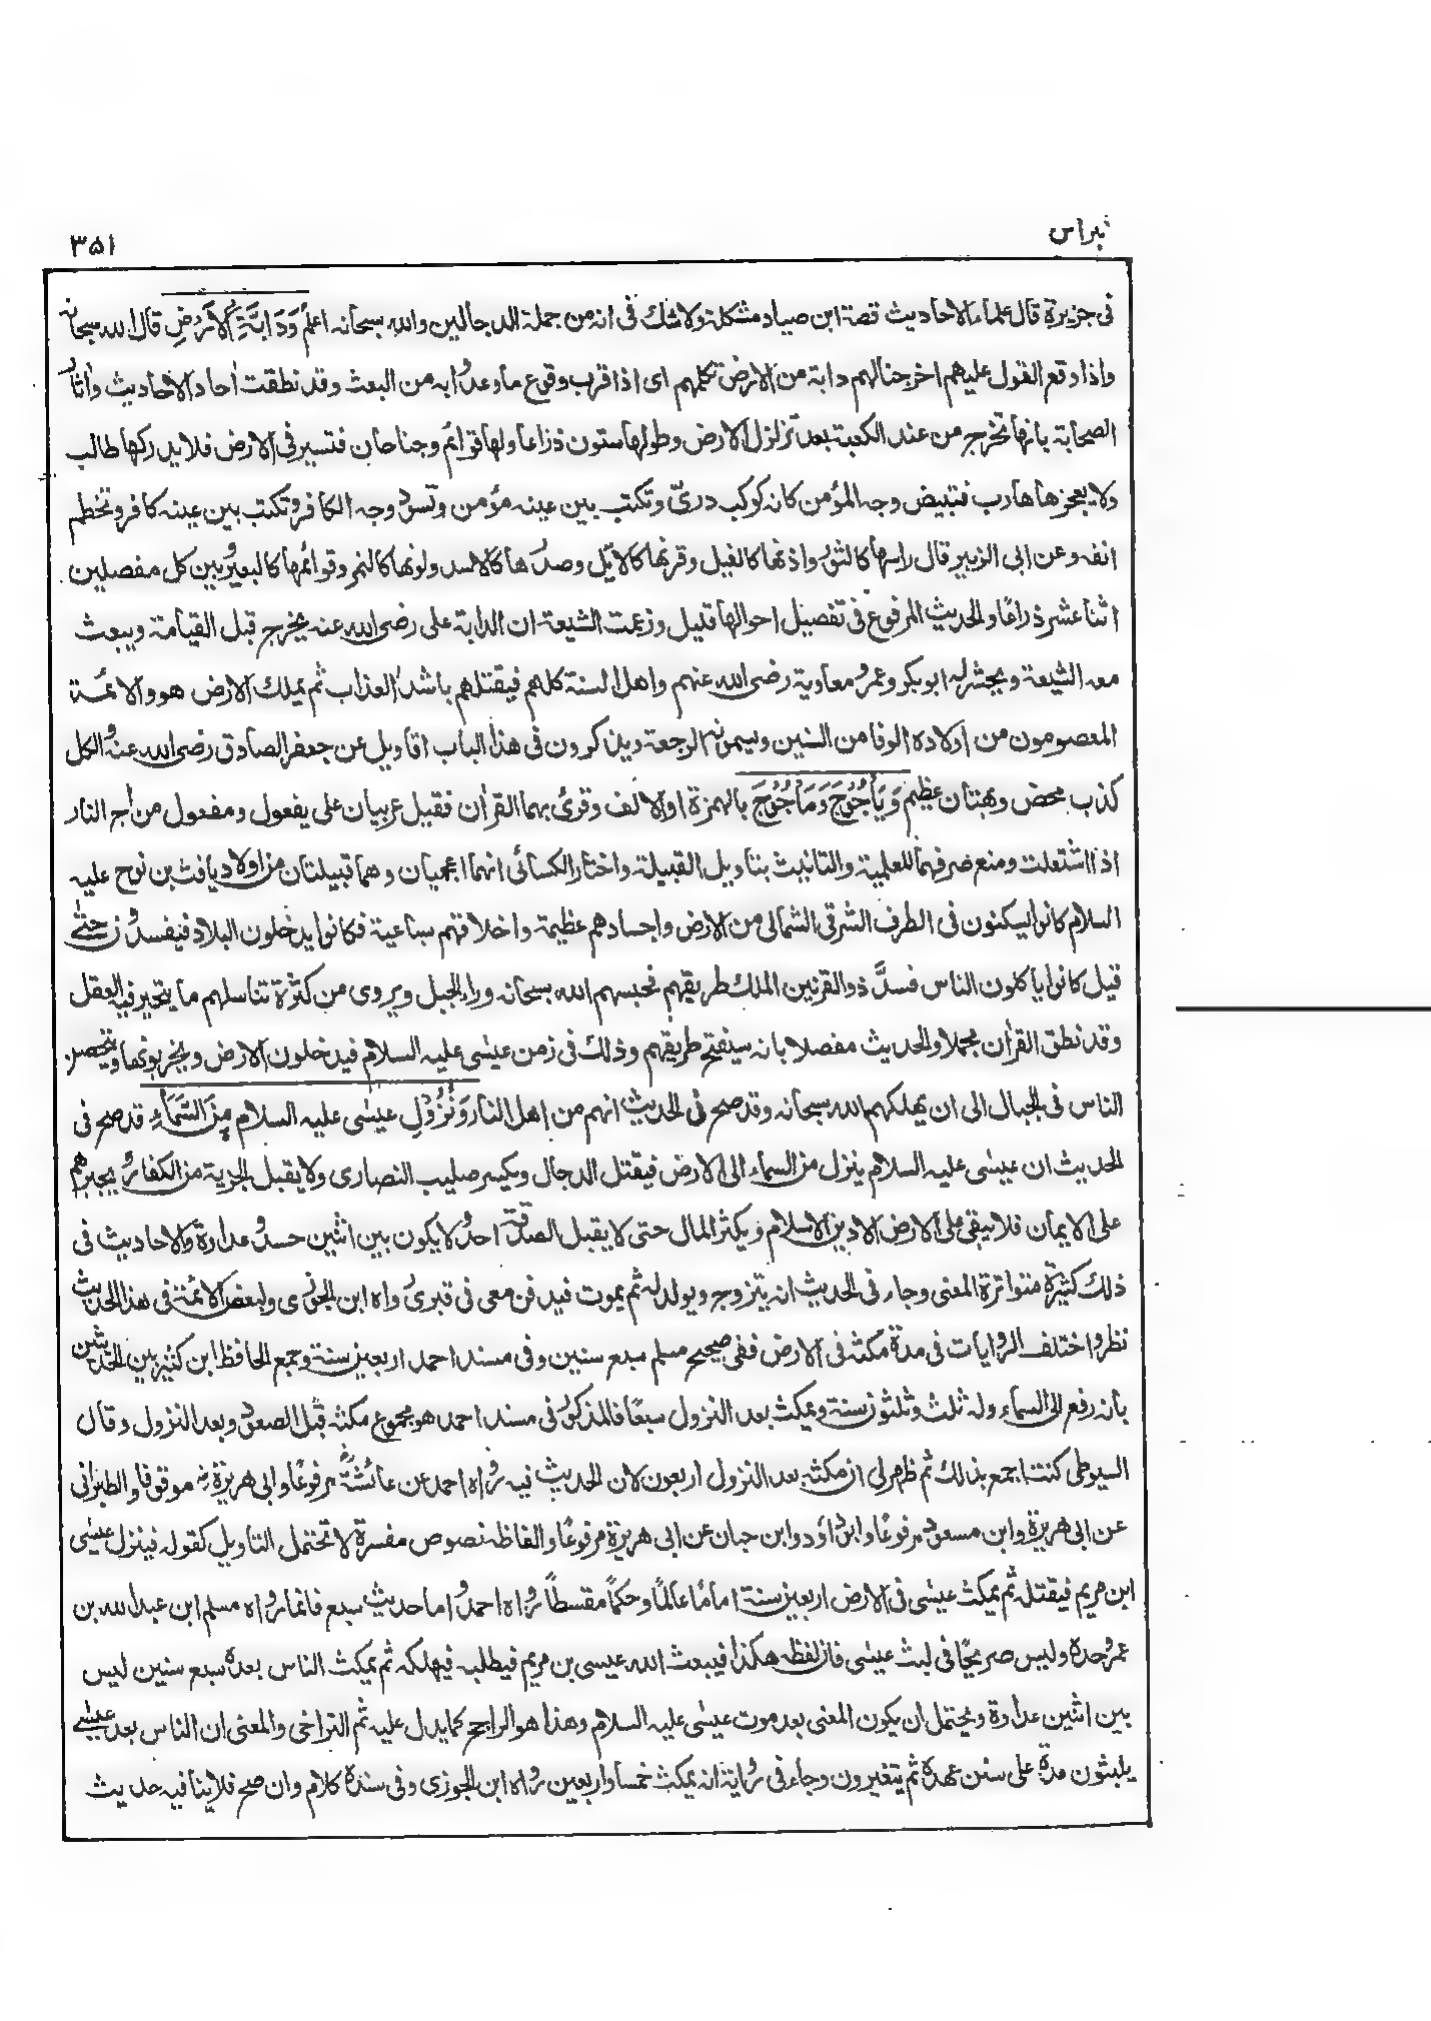 نبراس
۳۵۱
فی جزیرة قال علماء الاحادیث قصة ابن صیاد مشکلة ولا شك فی انه من جملة الدجالین والله سبحانه اعلم وَدَابَّةِ الْاَرْضِ قال الله سبحانه
واذا وقع القول علیهم اخرجنا لهم دابة من الارض تکلمهم ای اذا قرب وقوع ما وعدوا به من البعث وقد نطقت اٰحاد الاحادیث واٰثار
الصحابة بانها تخرج من عند الکعبة بعد تزلزل الارض وطولها ستون ذراعا ولها قوائم وجناحان فتسیر فی الارض فلا یدرکها طالب
ولا یعجزها هارب فتبیض وجه المؤمن کانه کوکب دریّ وتکتب بین عینه مؤمن وتسوّد وجه الکافر وتکتب بین عینه کافر وتخطم
انفه وعن ابی الزبیر قال راسها کالثور واذنها کالفیل وقرنها کالایّل وصدرها کالاسد ولونها کالنمر وقوائمها کالبعیر وبین کل مفصلین
اثنا عشر ذراعًا والحدیث المرفوع فی تفصیل احوالها قلیل وزعمت الشیعة ان الدابة علی رضی الله عنه یخرج قبل القیامة ویبعث
معه الشیعة ویحشر له ابوبکر وعمر ومعاویة رضی الله عنهم واهل السنة کلهم فیقتلهم باشد العذاب ثم یملك الارض هو والائمة
المعصومون من اولاده الوفا من السنین ویسمونه الرجعة ویذکرون فی هذا الباب اقاویل عن جعفر الصادق رضی الله عنه والکل
کذب محض وبهتان عظیم وَیَأْجُوْجَ وَمَأْجُوْجَ بالهمزة او الالف وقرئ بهما القراٰن فقیل عربیان علی یفعول ومفعول من اجّ النار
اذا اشتعلت ومنع صرفهما للعلمیة والتانیث بتاویل القبیلة واختار الکسائی انهما اعجمیان وهما قبیلتان من اولاد یافث بن نوح علیه
السلام کانوا یسکنون فی الطرف الشرقی الشمالی من الارض واجسادهم عظیمة واخلاقهم سباعیة فکانوا یدخلون البلاد فیفسدون حتّٰی
قیل کانوا یاکلون الناس فسدَّ ذوالقرنین الملك طریقهم فحبسهم الله سبحانه وراء الجبل ویروی من کثرة تناسلهم ما یتحیر فیه العقل
وقد نطق القراٰن مجملا والحدیث مفصلا بانه سینفتح طریقهم وذلك فی زمن عیسٰی علیه السلام فیدخلون الارض ویخربونها ویتحصن
الناس فی الجبال الی ان یهلکهم الله سبحانه وقد صح فی الحدیث انهم من اهل النار وَنُزُوْلِ عیسٰی علیه السلام مِنَ السَّمَاءِ قد صح فی
الحدیث ان عیسٰی علیه السلام ینزل من السماء الی الارض فیقتل الدجال ویکسر صلیب النصاری ولا یقبل الجزیة من الکفار ویجبرهم
علی الایمان فلا یبقی علی الارض الا دین الاسلام ویکثر المال حتی لا یقبل الصدقة احد ولا یکون بین اثنین حسد وعداوة والاحادیث فی
ذلك کثیرة متواترة المعنی وجاء فی الحدیث انه یتزوج ویولد له ثم یموت فیدفن معی فی قبری رواه ابن الجوزی ولبعض الائمة فی هذا الحدیث
نظر واختلف الروایات فی مدة مکثه فی الارض ففی صحیح مسلم سبع سنین وفی مسند احمد اربعین سنة وجمع الحافظ ابن کثیر بین الحدیثین
بانه رفع الی السماء وله ثلث وثلثون سنة ویمکث بعد النزول سبعًا فالمذکور فی مسند احمد هو مجموع مکثه قبل الصعود وبعد النزول وقال
السیوطی کنت اجمع بذالك ثم ظهر لی ان مکثه بعد النزول اربعون لان الحدیث فیه رواه احمد عن عائشة مرفوعًا وابی هریرة موقوفا والطبرانی
عن ابی هریرة وابن مسعود مرفوعًا وابوداؤد وابن حبان عن ابی هریرة مرفوعًا والفاظه نصوص مفسرة لا تحتمل التاویل کقوله فینزل عیسٰی
ابن مریم فیقتله ثم یمکث عیسٰی فی الارض اربعین سنة امامًا عالمًا وحکمًا مقسطًا رواه احمد واما حدیث سبع فانما رواه مسلم ابن عبدالله بن
عمر وحده ولیس صریحًا فی لبث عیسٰی فان لفظه هکذا فیبعث الله عیسی بن مریم فیطلبه فیهلکه ثم یمکث الناس بعده سبع سنین لیس
بین اثنین عداوة ویحتمل ان یکون المعنی بعد موت عیسٰی علیه السلام وهذا هو الراجح کما یدل علیه ثم التراخی والمعنی ان الناس بعد عیسٰی
یلبثون مدة علی سنن عهده ثم یتغیرون وجاء فی روایة انه یمکث خمسا واربعین رواه ابن الجوزی وفی سنده کلام وان صح فلا ینافیه حدیث